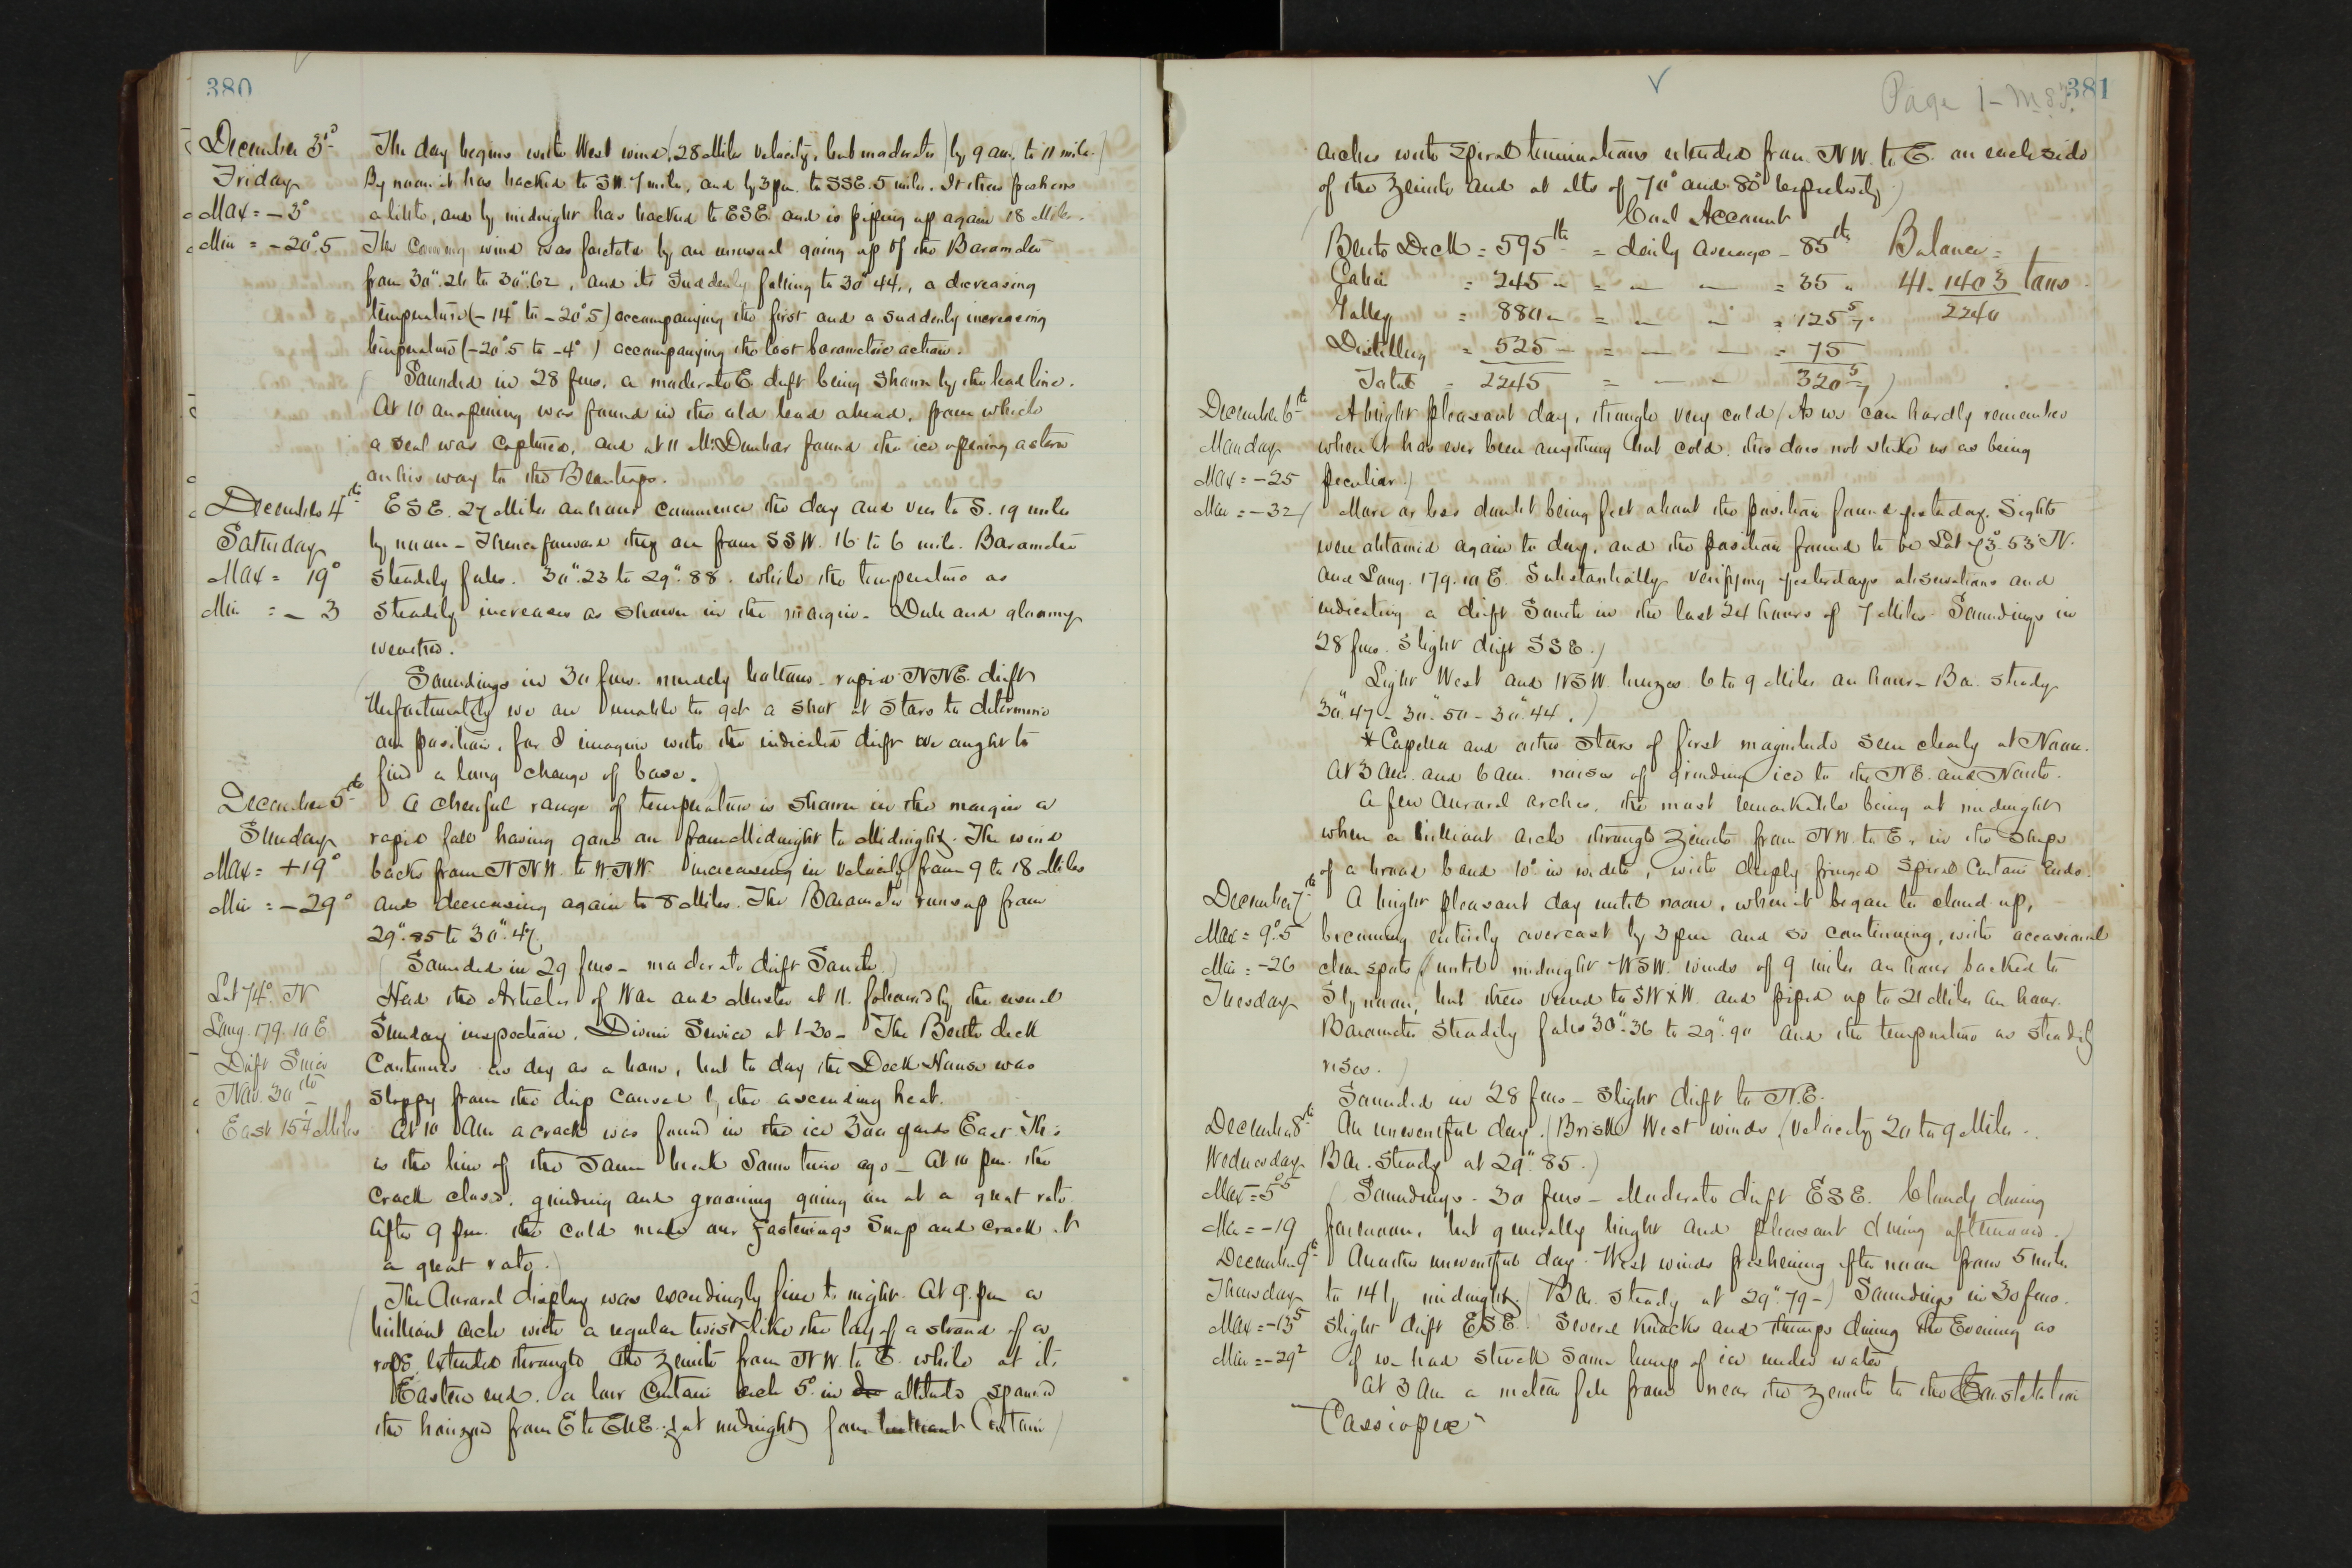 380
December 3rd
Friday
Max = -3°
Min = -20°.5
The day begins with West wind (28 Miles velocity, but moderates) by 9 am. to 11 miles.)
By noon it has backed to SW. 7 miles, and by 3 pm. to SSE. 5 miles. It then freshens
a little, and by midnight has backed to ESE and is piping up again 18 Miles.
The coming wind was foretold by an unusual going up of the Barometer
from 30".26 to 30".62, and its suddenly falling to 30".44, a decreasing
temperature (-14° to -20°.5) accompanying the first and a suddenly increasing
temperature (-20°.5 to -4°) accompanying the last barometric action.
Sounded in 28 fms. a moderate E. drift being shown by the lead line.
At 10 an opening was found in the old lead ahead, from which
a seal was captured, and at 11 Mr. Dunbar found the ice opening astern
on his way to the Beartraps.
December 4th
Saturday
Max = 19°
Min = - 3
ESE. 27 Miles an hour commence the day and veer to S. 19 miles
by noon - Thenceforward they are from SSW. 16 to 6 mile. Barometer
steadily falls. 30".23 to 29".88. while the temperature as
steadily increases as shown in the margin - Dull and gloomy
weather.
Soundings in 30 fms. muddy bottom - rapid NNE. drift
Unfortunately we are unable to get a shot at stars to determine
our position, for I imagine with the indicated drift we ought to
find a long change of base.)
December 5th
Sunday
Max = +19°
Min = -29°
A cheerful range of temperature is shown in the margin a
rapid fall having gone on from Midnight to Midnight. The wind
backs from NNW. to WNW. increasing in velocity from 9 to 18 Miles
and decreasing again to 8 Miles. The Barometer runs up from
29".85 to 30".47.
(Sounded in 29 fms - moderate drift South.)
Lat 74° N
Long. 179.10 E
Drift Since
Nov. 30th
East 15 4/10 Miles
Read the Articles of War and Muster at 11. followed by the usual
Sunday inspection. Divine Service at 1-30 - The Berth deck
Continues as dry as a bone, but to day the Deck House was
sloppy from the drip caused by the ascending heat.
At 10 Am a crack was found in the ice 300 yards East. This
is the line of the same break some time ago - At 10 pm. the
crack closed, grinding and groaning going on at a great rate.
After 9 pm. the cold made our fastenings snap and crack at
a great rate.)
(The Auroral display was exceedingly fine to night. At 9. pm a
brilliant arch with a regular twist like the lay of a strand of a
rope extended through the zenith from NW. to E. while at its
Eastern end. a low Curtain arch 5° in altitude spanned
the horizon from E to ENE. (at midnight) four brilliant Curtain)
✓
Page 1 - M.S.S.
381
arches with spiral terminations extended from NW. to E. on each side
of the zenith and at alts of 70° and 80° respectively.)
Coal Account
Berth Deck = 595 lbs = daily average = 85 lbs Balance =
Cabin = 245 " = — — = 35 " 41. 1403 tons
Galley = 880 " = — " = 125 5/7 " 2240
Distilling = 525 — = — — = 75
Total = 2245 = — — 320 5/7)
December 6th
Monday
Max = -25
Min = -32
A bright pleasant day, though very cold (As we can hardly remember
when it has ever been anything but cold. this does not strike us as being
peculiar.)
(More or less doubt being felt about the position found yesterday. Sights
were obtained again to day, and the position found to be Lat 73°.53' N.
and Long. 179.10 E. Substantially verifying yesterdays observations and
indicating a drift South in the last 24 hours of 7 Miles - Soundings in
28 fms. slight drift SSE.)
(Light West and WSW. breezes. 6 to 9 Miles an hour - Bar. steady
30".47 - 30".50 - 30".44.)
*Capella and other stars of first magnitude seen clearly at Noon.
At 3 Am. and 6 am. noises of grinding ice to the NE. and North.
A few Auroral arches, the most remarkable being at midnight
when a brilliant arch through zenith from NW. to E. in the shape
of a broad band 10° in width, with deeply fringed spiral Curtain Ends.
December 7th
Max = 9°.5
Min = -26
Tuesday
A bright pleasant day until noon, when it began to cloud up,
becoming entirely overcast by 3 pm and so continuing, with occasional
clear spots (until midnight WSW. winds of 9 miles an hour backed to
S by noon, but then veered to SWxW. and piped up to 21 Miles an hour.
Barometer steadily falls 30".36 to 29".90 and the temperature as steadily
rises.)
Sounded in 28 fms - slight drift to N.E.
December 8th
Wednesday
Max = 5°5
Min = -19
An uneventful day. (Brisk West winds (velocity 20 to 9 Miles.
Bar. steady at 29".85.)
(Soundings - 30 fms - Moderate drift ESE. Cloudy during
forenoon, but generally bright and pleasant during afternoon.)
December 9th
Thursday
Max = -13 5
Min = -29 2
Another uneventful day. West winds freshening after noon from 5 mile
to 14 by midnight. (Bar. steady at 29".79 -) Soundings in 30 fms.
slight drift ESE. Several knocks and thumps during the Evening as
if we had struck some lump of ice under water
At 3 Am a meteor fell from near the zenith to the Constellation
"Cassiopea"